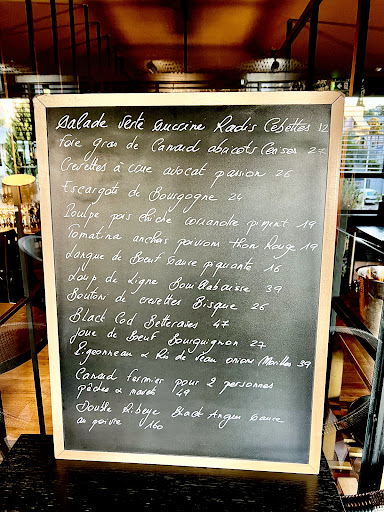 Salade verte sucrine Radis Cébettes 12
foie gras de Canard abricots Cerises 27
Crevettes à crue avocat passion 26
Escargots de Bourgogne 24
Poulpe pois chiche coriandre piment 19
Tomatina anchois poivrons thon Rouge 19
Langue de Boeuf Sauce piquante 16
Loup de Ligne Bouillabaisse 39
Boutons de crevettes Bisque 26
Black Cod Betteraves 47
Joue de Boeuf Bourguignon 27
Pigeonneau & Ris de veau onions Morilles 39
Canard fermier pour 2 personnes
pêches & maïs 49
Double Ribeye Black Angus Sauce
au poivre 160